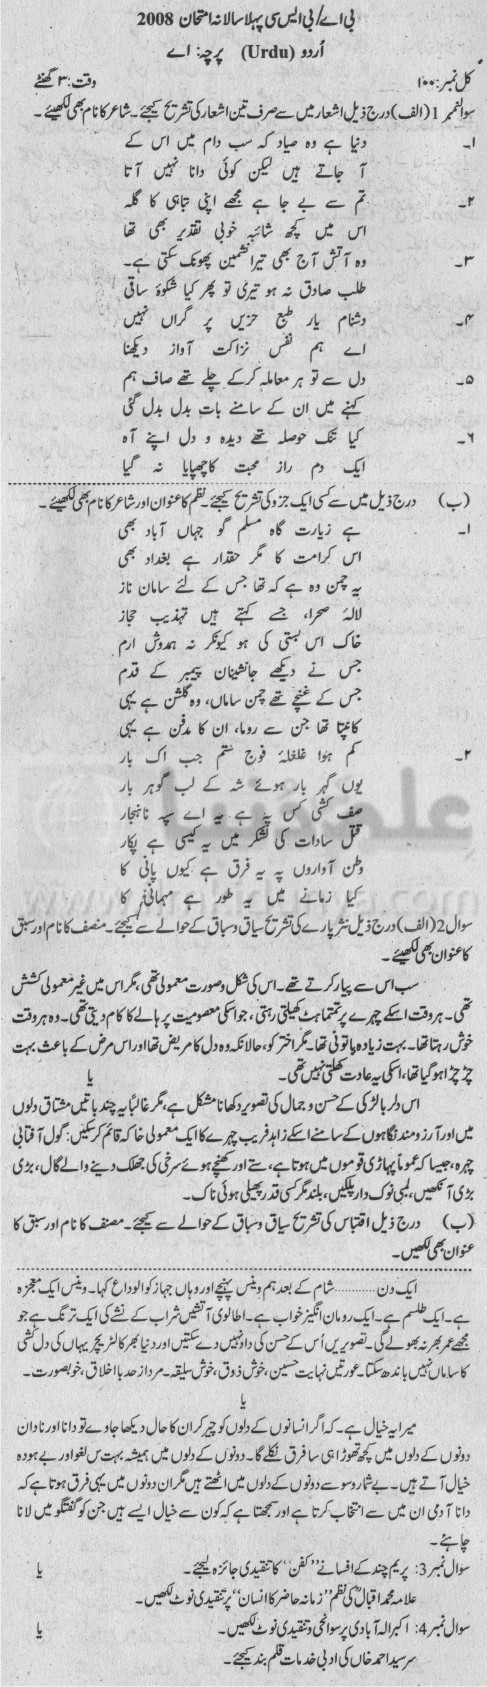 بی اے/بی ایس سی پہلا سالانہ امتحان 2008
اُردو (Urdu) پرچہ: اے
کل نمبر: ۱۰۰ وقت: ۳ گھنٹے
سوال نمبر 1 (الف) درج ذیل اشعار میں سے صرف تین اشعار کی تشریح کیجئے۔ شاعر کا نام بھی لکھیئے۔
۱۔ دنیا ہے وہ صیاد کہ سب دام میں اس کے
آ جاتے ہیں لیکن کوئی دانا نہیں آتا
۲۔ تم سے بے جا ہے مجھے اپنی تباہی کا گلہ
اس میں کچھ شائبہ خوبی تقدیر بھی تھا
۳۔ وہ آتش آج بھی تیرا نشیمن پھونک سکتی ہے۔
طلب صادق نہ ہو تیری تو پھر کیا شکوۂ ساقی
۴۔ دشنام یار طبع حزیں پر گراں نہیں
اے ہم نفس نزاکت آواز دیکھنا
۵۔ دل سے تو ہر معاملہ کرکے چلے تھے صاف ہم
کہنے میں ان کے سامنے بات بدل بدل گئی
۶۔ کیا تنگ حوصلہ تھے دیدہ و دل اپنے آہ
ایک دم راز محبت کا چھپایا نہ گیا
(ب) درج ذیل میں سے کسی ایک جزو کی تشریح کیجئے۔ نظم کا عنوان اور شاعر کا نام بھی لکھیئے۔
۱۔ ہے زیارت گاہ مسلم گو جہاں آباد بھی
اس کرامت کا مگر حقدار ہے بغداد بھی
یہ چمن وہ ہے کہ تھا جس کے لئے سامان ناز
لالۂ صحرا، جسے کہتے ہیں تہذیب حجاز
خاک اس بستی کی ہو کیونکر نہ ہمدوش ارم
جس نے دیکھے جانشینان پیمبر کے قدم
جس کے غنچے تھے چمن ساماں، وہ گلشن ہے یہی
کانپتا تھا جن سے روما، ان کا مدفن ہے یہی
۲۔ کم ہوا غلغلۂ فوج ستم جب اک بار
یوں گہر بار ہوئے شہ کے لب گوہر بار
صف کشی کس پہ ہے یہ اے سپہ ناہنجار
قتل سادات کی لشکر میں یہ کیسی ہے پکار
وطن آواروں پہ یہ فرق ہے کیوں پانی کا
کیا زمانے میں یہ طور ہے مہمانی کا
سوال 2 (الف) درج ذیل نثر پارے کی تشریح سیاق و سباق کے حوالے سے کیجئے۔ منصف کا نام اور سبق
کا عنوان بھی لکھیئے۔
سب اس سے پیار کرتے تھے۔ اس کی شکل و صورت معمولی تھی، مگر اس میں غیر معمولی کشش
تھی۔ ہر وقت اسکے چہرے پر تمتماہٹ کھیلتی رہتی، جو اسکی معصومیت پر ہالے کا کام دیتی تھی۔ وہ ہر وقت
خوش رہتا تھا۔ بہت زیادہ باتونی تھا۔ مگر اختر کو، حالانکہ وہ دل کا مریض تھا اور اس مرض کے باعث بہت
چڑچڑا ہو گیا تھا، اسکی یہ عادت کھلتی نہیں تھی۔ یا
اس دلربا لڑکی کے حسن و جمال کی تصویر دکھانا مشکل ہے، مگر غالباً یہ چند باتیں مشتاق دلوں
میں اور آرزو مند نگاہوں کے سامنے اسکے زاہد فریب چہرے کا ایک معمولی خاکہ قائم کر سکیں: گول آفتابی
چہرہ، جیسا کہ عموماً پہاڑی قوموں میں ہوتا ہے، ستے اور کھنچے ہوئے سرخی کی جھلک دینے والے گال، بڑی
بڑی آنکھیں، لمبی نوک دار پلکیں، بلند مگر کسی قدر پھیلی ہوئی ناک۔
(ب) درج ذیل اقتباس کی تشریح سیاق و سباق کے حوالے سے کیجئے۔ مصنف کا نام اور سبق کا
عنوان بھی لکھیں۔
ایک دن............شام کے بعد ہم وینس پہنچے اور وہاں جہاز کو الوداع کہا۔ وینس ایک معجزہ
ہے۔ ایک طلسم ہے۔ ایک رومان انگیز خواب ہے۔ اطالوی آتشیں شراب کے نشے کی ایک ترنگ ہے جو
مجھے عمر بھر نہ بھولے گی۔ تصویریں اُس کے حسن کی داد نہیں دے سکتیں اور دنیا بھر کا لٹریچر یہاں کی دل کشی
کا ساماں نہیں باندھ سکتا۔ عورتیں نہایت حسین، خوش ذوق، خوش سلیقہ۔ مرد از حد با اخلاق، خوبصورت۔
یا
میرا یہ خیال ہے۔ کہ اگر انسانوں کے دلوں کو چیر کر ان کا حال دیکھا جاوے تو دانا اور نادان
دونوں کے دلوں میں کچھ تھوڑا ہی سا فرق نکلے گا۔ دونوں کے دلوں میں ہمیشہ بہت س لغو اور بے ہودہ
خیال آتے ہیں۔ بے شمار وسوسے دونوں کے دلوں میں اٹھتے ہیں مگر ان دونوں میں یہی فرق ہوتا ہے کہ
دانا آدمی ان میں سے انتخاب کرتا ہے اور سمجھتا ہے کہ کون سے خیال ایسے ہیں جن کو گفتگو میں لانا
چاہئے۔
سوال نمبر 3: پریم چند کے افسانے ”کفن“ کا تنقیدی جائزہ لیجئے۔ یا
علامہ محمد اقبالؒ کی نظم ”زمانہ حاضر کا انسان“ پر تنقیدی نوٹ لکھیں۔
سوال نمبر 4: اکبر الہ آبادی پر سوانحی و تنقیدی نوٹ لکھیں۔ یا
سرسید احمد خاں کی ادبی خدمات قلم بند کیجئے۔